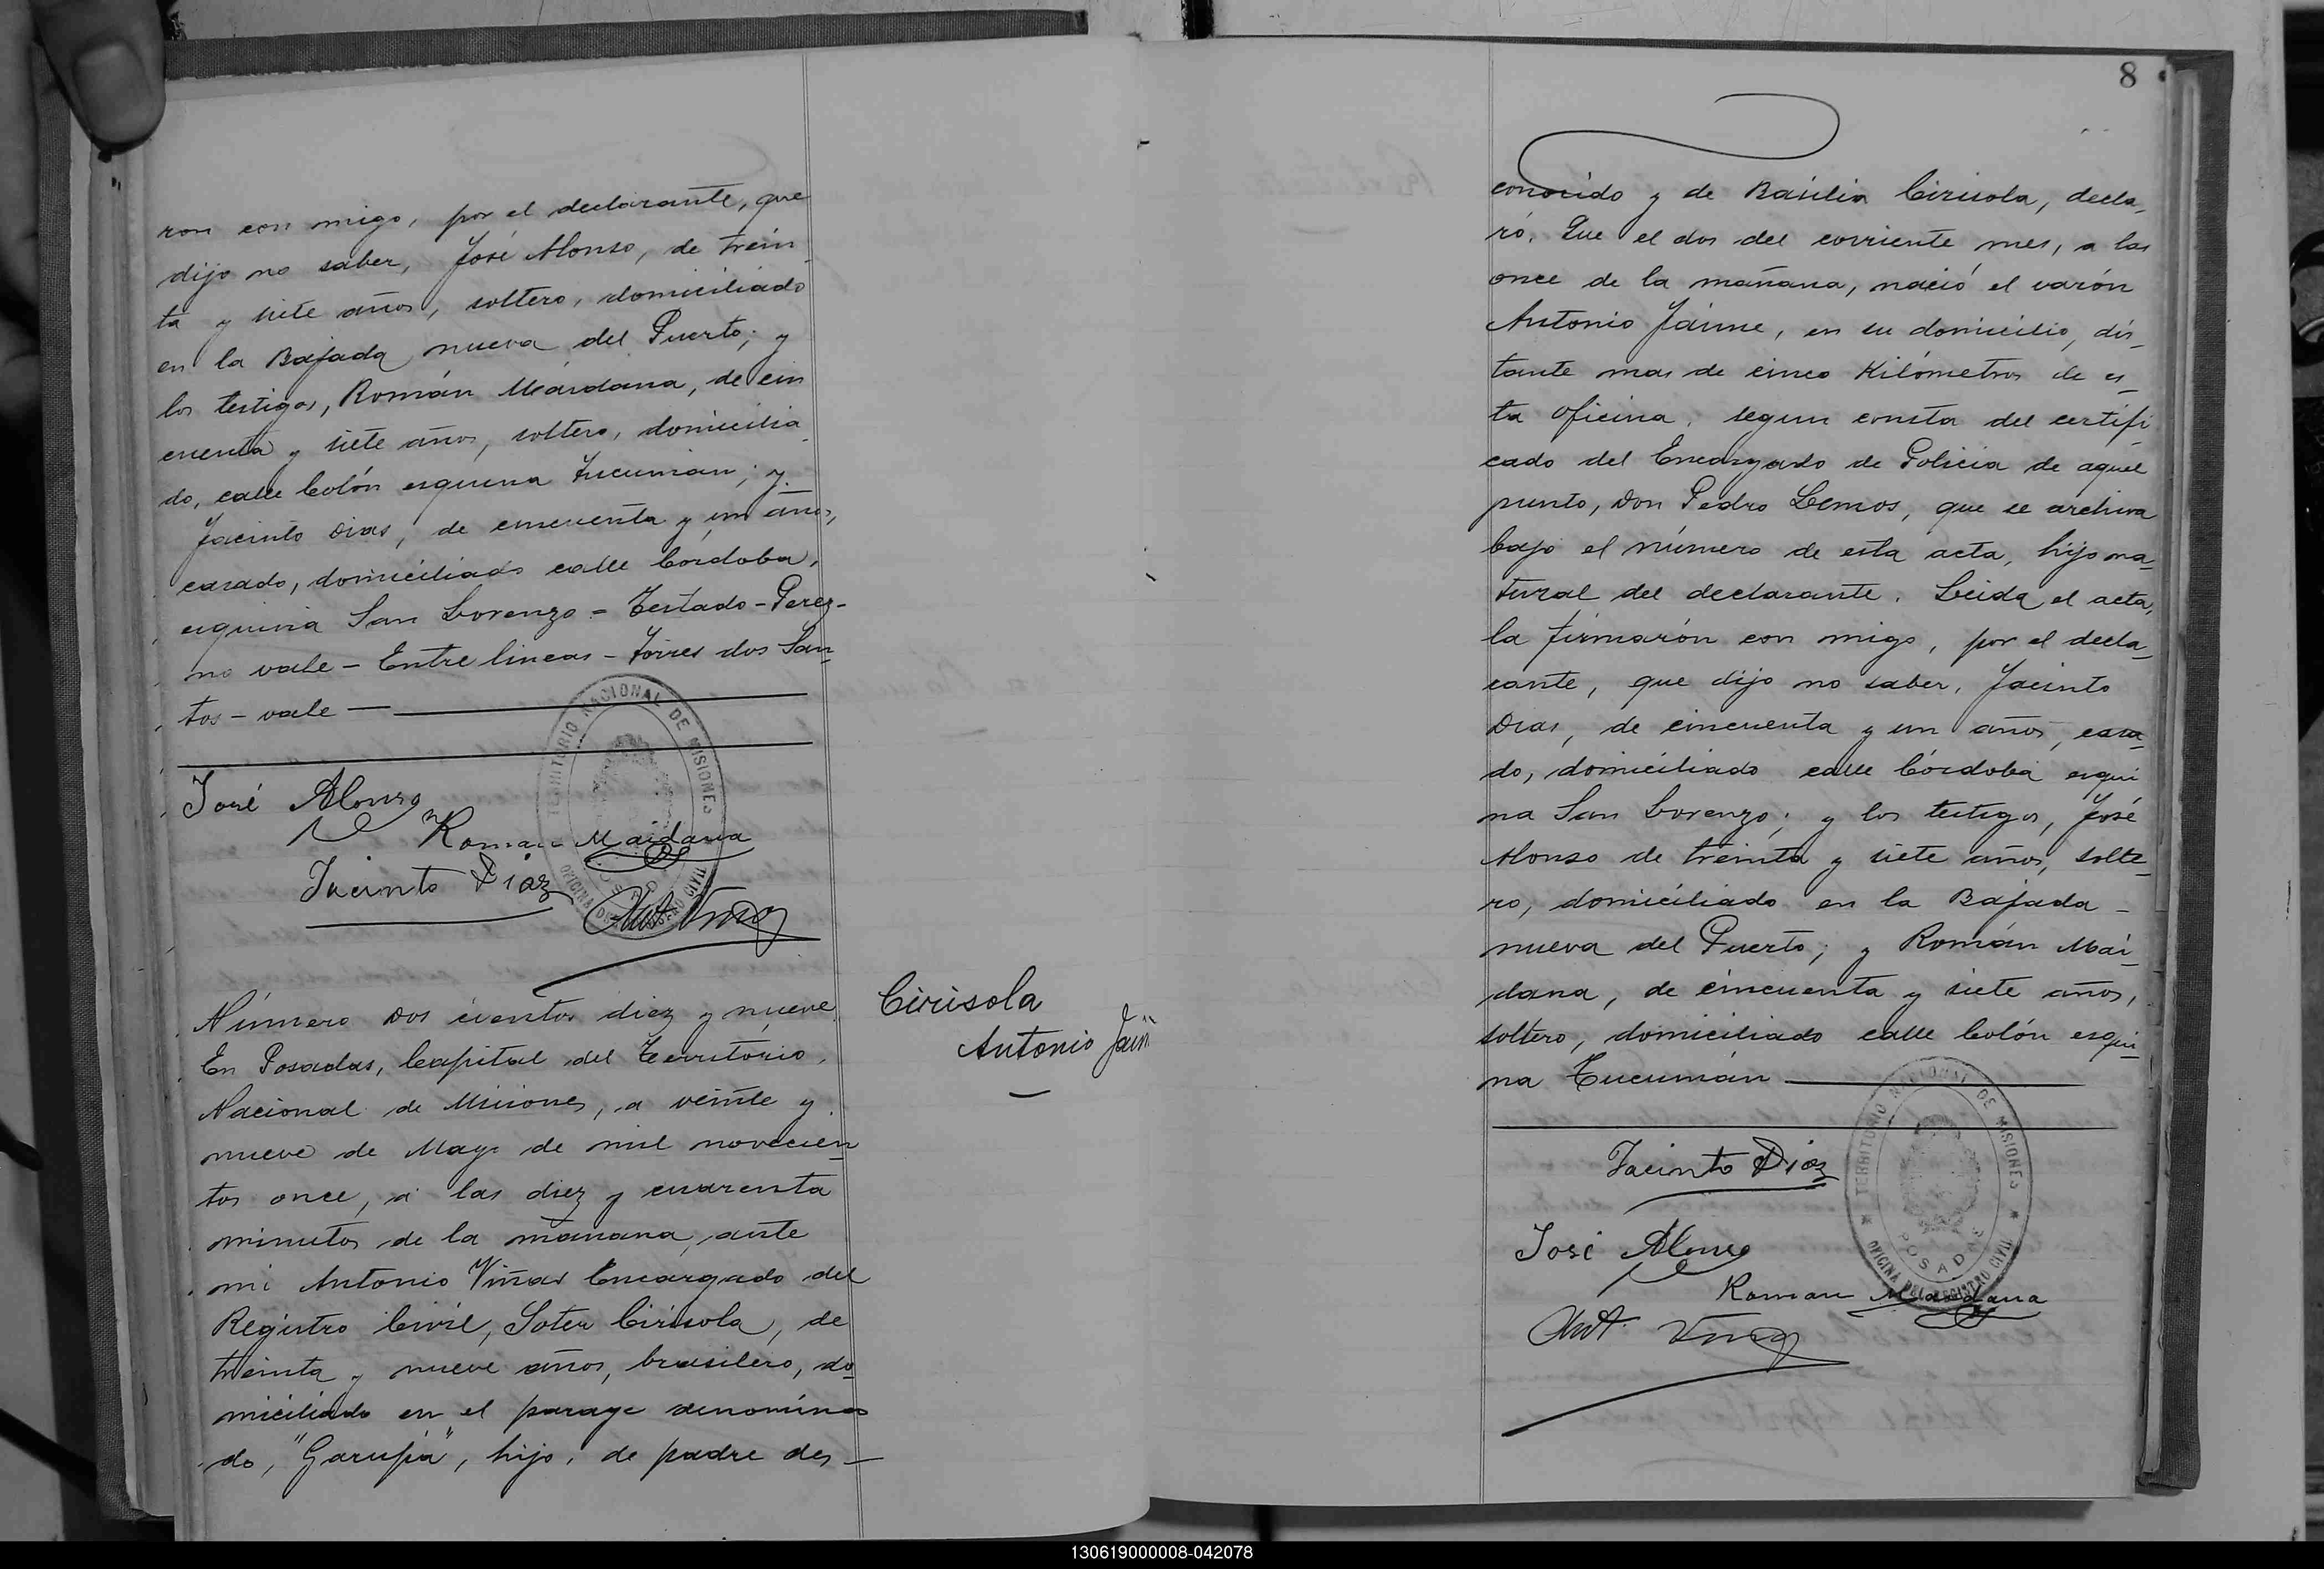 ron con migo, por el declarante, que
dijo no saber, José Alonso, de trein
ta y siete años, soltero, domiciliado
en la Bajada nueva del Puerto; y
los testigos, Román Maidana, de cin
cuenta y siete años, soltero, domicilia
do, calle Colón esquina Tucumán; y
Jacinto Dias, de cincuenta y un años,
casado, domiciliado calle Córdoba,
esquina San Lorenzo = Testado - Perez -
no vale - Entre lineas - Torres dos San
tos - vale —
TERRITORIO NACIONAL DE MISIONES
OFICINA DEL REGISTRO CIVIL
José Alonso
Roman Maidana
Jacinto Diaz
Ant Vinas
Número dos cientos diez y nueve
En Posadas, Capital del Territorio,
Nacional de Misiones, a veinte y
nueve de Mayo de mil novecien
tos once, a las diez y cuarenta
minutos de la mañana, ante
mi Antonio Viñas Encargado del
Registro Civil, Soter Cirisola, de
treinta y nueve años, brasilero, do
miciliado en el parage denomina
do, "Garupá", hijo, de padre des —
Cirisola
Antonio Jaim
8
conocido y de Basilia Cirisola, decla_
ró. Que el dos del corriente mes, a las
once de la mañana, nació el varón
Antonio Jaime, en su domicilio, dis_
tante mas de cinco Kilómetros de es_
ta oficina, segun consta del certifi_
cado del Encargado de Policia de aquel
punto, Don Pedro Lemos, que se archiva
bajo el número de esta acta, hijo na_
tural del declarante. Leida el acta,
la firmarón con migo, por el decla_
rante, que dijo no saber, Jacinto
Dias, de cincuenta y un años, casa_
do, domiciliado calle Córdoba esqui
na San Lorenzo; y los testigos, José
Alonso de treinta y siete años, solte_
ro, domiciliado en la Bajada _
nueva del Puerto; y Román Mai_
dana, de cincuenta y siete años,
soltero, domiciliado calle Colón esqui_
na Tucumán
TERRITORIO NACIONAL DE MISIONES
POSADAS
OFICINA DEL REGISTRO CIVIL
Jacinto Diaz
José Alonso
Roman Maidana
Ant. Vinas
130619000008-042078